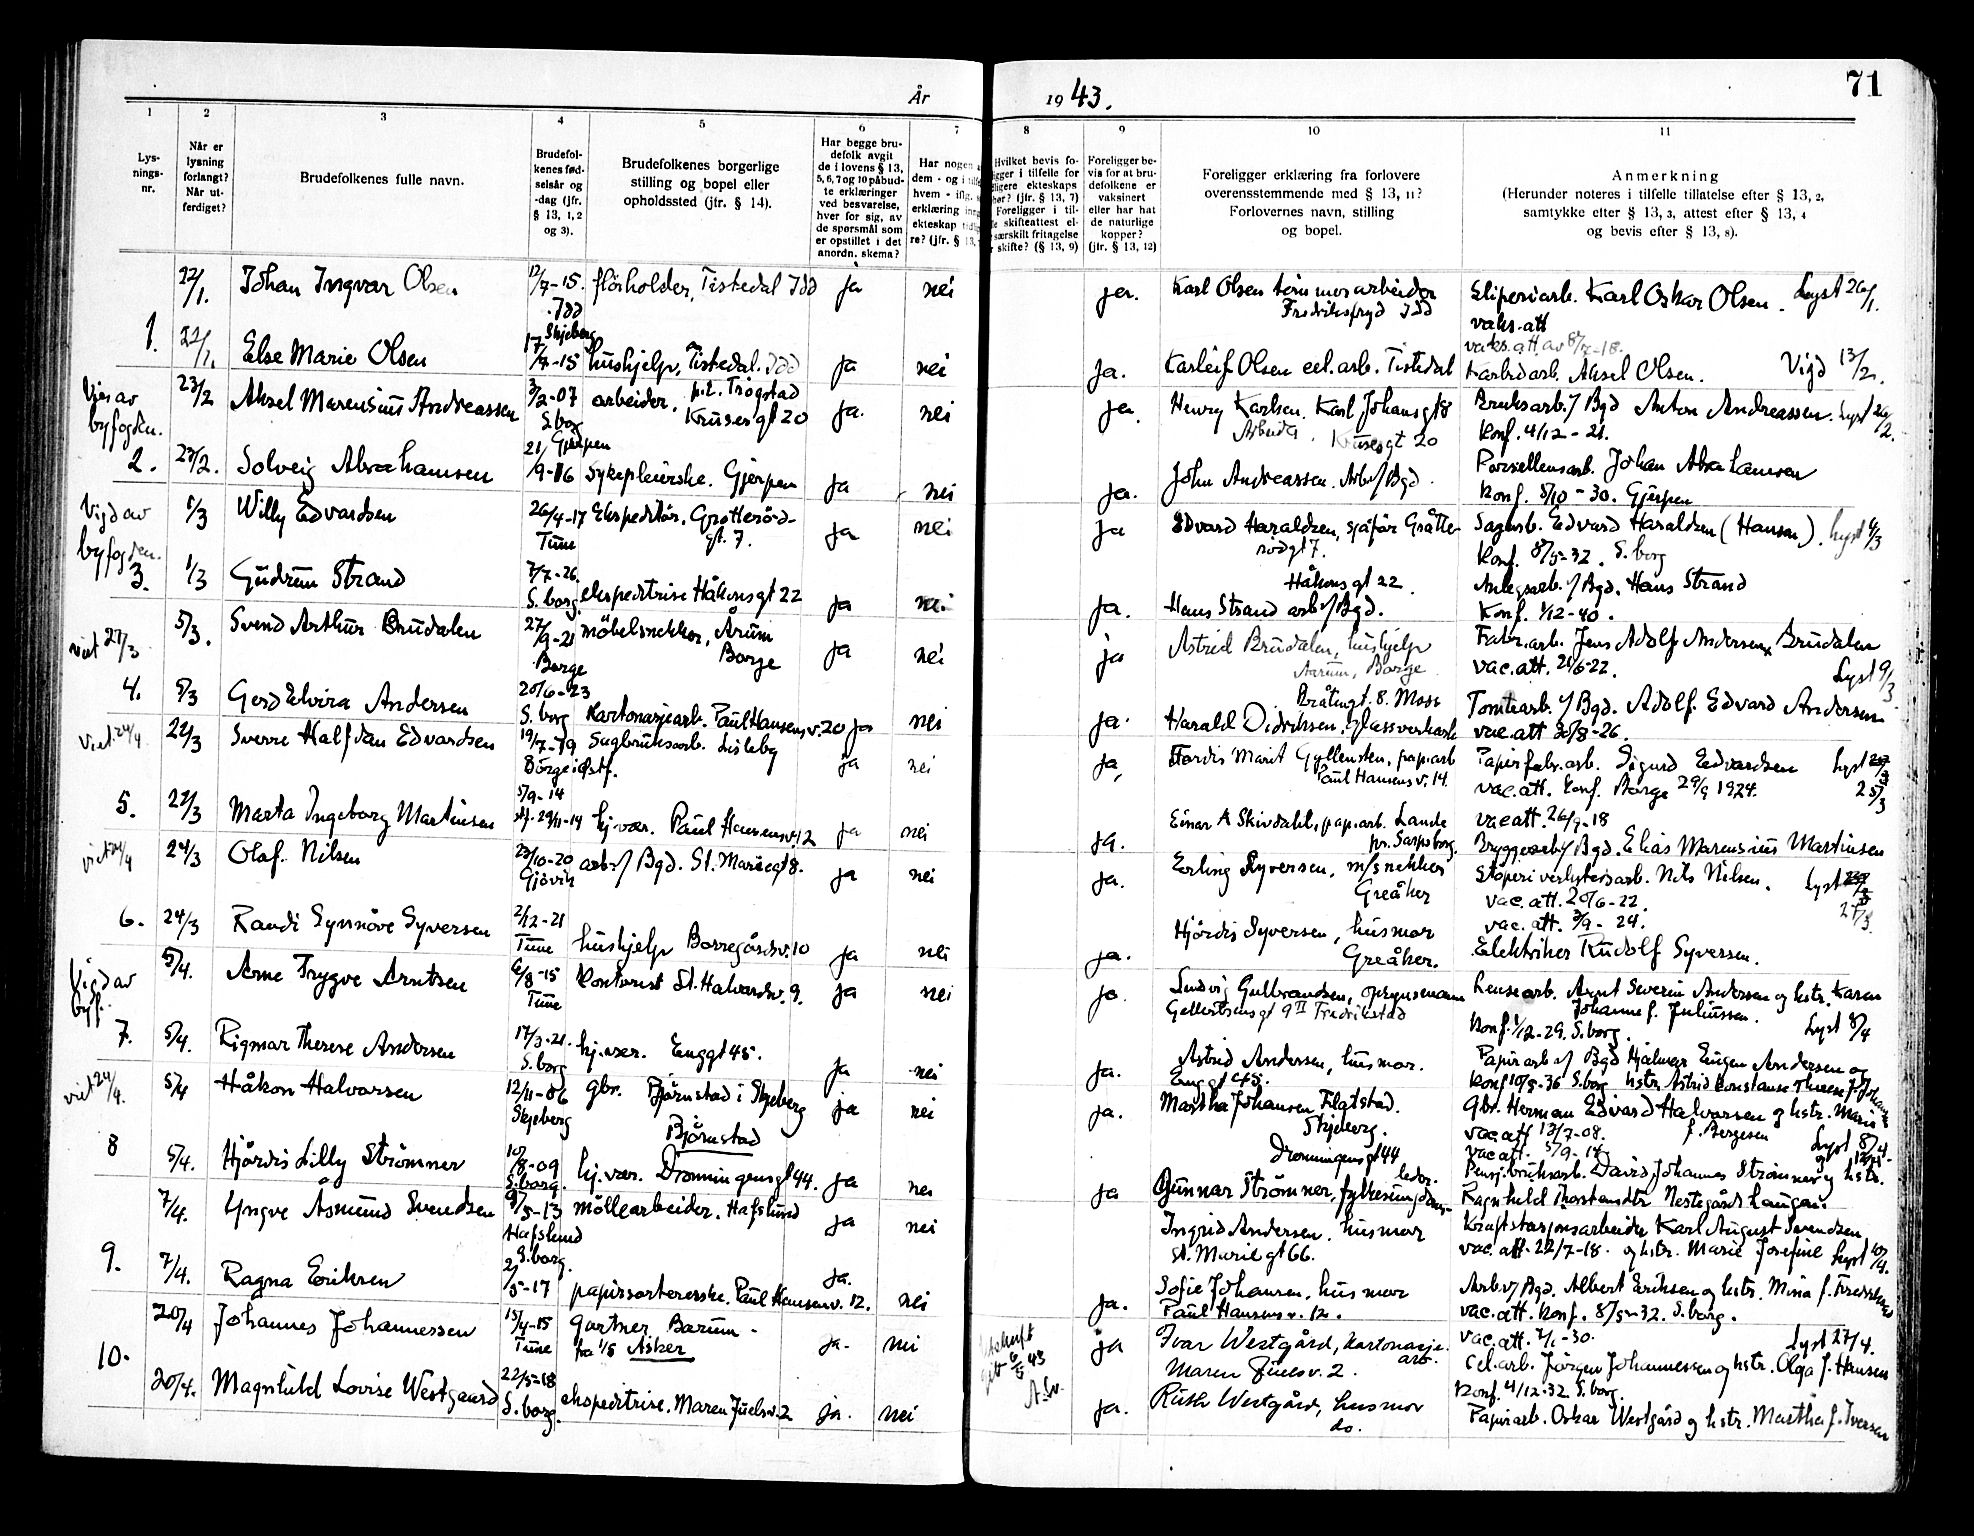 71
År 1943.
1 2 3 4 5 6 7 8 9 10 11
Lys-
nings-
nr.
Når er
lysning
forlangt?
Når ut-
ferdiget?
Brudefolkenes fulle navn.
Brudefol-
kenes fød-
selsår og
-dag (jfr.
§ 13, 1, 2
og 3).
Brudefolkenes borgerlige
stilling og bopel eller
opholdssted (jfr. § 14).
Har begge bru-
defolk avgit
de i lovens § 13,
5, 6, 7 og 10 påbud-
te erklæringer
ved besvarelse,
hver for sig, av
de spørsmål som
er opstillet i det
anordn. skema?
Har nogen
dem - og i
hvem - iflg.
erklæring
ekteskap
re? (jfr. §
Hvilket bevis fo-
ligger i tilfelle for
ekteskaps
(jfr. § 13, 7)
Foreligger i til-
skifteattest el-
særskilt fritagelse
skifte? (§ 13, 9)
Foreligger be-
vis for at bru-
defolkene er
vaksinert
eller har hat
de naturlige
kopper?
(jfr. § 13, 12)
Foreligger erklæring fra forlovere
overensstemmende med § 13, 11?
Forlovernes navn, stilling
og bopel.
Anmerkning
(Herunder noteres i tilfelle tillatelse efter § 13, 2,
samtykke efter § 13, 3, attest efter § 13, 4
og bevis efter § 13, 8).
22/1. Johan Ingvar Olsen 12/7-15. Idd Tistedal Idd ja nei ja. Karl Olsen tømmerarbeider
Fredriksfryd Idd
Sliperiarb. Karl Oskar Olsen. Lyst 26/1.
vaks.att
vaks.att. av 8/7-18.
1. 22/1. Else Marie Olsen Skjeberg 17/7-15 hushjelp, Tistedal. Idd ja nei ja. Karleif Olsen eel.arb. Tistedal
Karbidarb. Aksel Olsen. Vigd 13/2.
Vies av
byfogden.
23/2 Aksel Marensius Andreassen 3/2-07 S.borg arbeider, p.t. Trøgstad
Krusesgt 20 ja. nei ja. Henry Karlsen. Karl Johansgt 8
Arbeider. Krusesgt 20
Bruksarb. v/ Bgd Anton Andreassen. Lyst 26/2.
Konf. 4/12-21.
2. 23/2. Solveig Abrahamsen 21/9-16 Gjerpen sykepleierske. Gjerpen ja nei ja. John Andreassen. Arb v/ Bgd.
Porsellensarb. Johan Abrahamsen
Konf. 5/10-30. Gjerpen
Vigd av
byfogden.
1/3 Willy Edvardsen 26/4-17 Tune Ekspeditør, Grotterød-
gt. 7. ja nei ja Edvard Haraldsen, sjåfør Gråtte-
rødgt 7.
Sagarb. Edvard Haraldsen (Hansen). Lyst 4/3
Konf. 8/5-32. S.borg
3. 1/3 Gudrun Strand 7/7-26. S.borg. ekspeditrise Håkonsgt 22 ja nei ja. Håkonsgt 22
Hans Strand arb v/ Bgd.
Anlegsarb. v/ Bgd. Hans Strand
Konf. 1/12-40.
viet 27/3
5/3. Svend Arthur Brudalen 27/9-21 Borge møbelsnekker, Årum
Borge ja nei ja Astrid Brudalen, hushjelp
Aarum, Borge
Fabr.arb. Jens Adolf Andersen Brudalen
vac.att. 21/6-22. Lyst 9/3
4. 5/3 Gerd Elvira Andersen 20/6-23 S.borg Kartonasjearb. Paul Hansensv. 20 ja nei ja. Bråtengt. 8. Moss
Harald Didriksen, glassverkarb
Tomtearb. v/ Bgd. Adolf Edvard Andersen
vac.att 30/8-26.
Viet 24/4
22/3 Sverre Halfdan Edvardsen 19/7-19 Borge i Østf. Sagbruksarb. Lisleby ja nei ja, Herdis Marit Gyllensten, pap.arb
Paul Hansensv. 14.
Papirfabr.arb. Sigurd Edvardsen Lyst
vac.att. Konf. Borge 29/9 1924. 25/3
5. 22/3 Marta Ingeborg Martinsen 5/9-14 hj.vær. Paul Hansensv. 12 ja nei ja. Einar A Skivdahl, pap.arb. Lande
pr. Sarpsborg.
vac att. 26/9-18
Bryggearb v/ Bgd. Elias Marensius Martinsen
viet 24/4
24/3 Olaf Nilsen 23/10-20 Gjøvik arb v/ Bgd. St. Mariegt 8. ja nei ja. Erling Syversen, m/snekker
Greåker
Støperivirksomhetsarb. Nils Nilsen. Lyst
vac.att. 20/6-22. 27/3.
6. 24/3 Randi Synnøve Syversen 2/12-21 Tune hushjelp Borregårdsv. 10 ja nei ja. Hjørdis Syversen, husmor
Greåker.
vac.att. 3/9-24.
Elektriker Rudolf Syversen.
Vigd av
byf.
5/4. Arne Trygve Arntsen 6/8-15 Tune Kontorist St. Halvardsv. 9. ja nei ja. Ludvig Gulbrandsen, oppsynsmann
Gellertsensgt 9 II Fredrikstad
Lensearb. Arnt Severin Andersen og hstr. Karen
Johanne f. Juliussen.
Konf. 1/12-29. S.borg. Lyst 8/4
7. 5/4. Rigmor Therese Andersen 17/3-21. S.borg hj.vær. Enggt 45. ja nei ja. Astrid Andersen, husmor.
Enggt 45.
Papirarb v/ Bgd Hjalmar Eugen Andersen og
Konf 10/5-36 S.borg hstr. Astrid Konstanse Therese f. Johansen
viet 24/4.
5/4 Håkon Halvorsen 12/11-06 Skjeberg gbr. Bjørnstad i Skjeberg
Bjørnstad ja nei ja. Martha Johansen Flatstad.
Skjeberg.
Gbr. Herman Edvard Halvorsen og hstr. Marie
f. Børgesen
vac.att 13/7-08. Lyst 8/4.
8 5/4. Hjørdis Lilly Strømner 10/8-09 S.borg. hj.vær. Dronningensgt 44. ja nei ja Dronningensgt 44
Gunnar Strømner, fylkesungdoms-
leder.
vac att. 5/9-14
Pensj. bruksarb. David Johannes Strømner og hstr.
Ragnhild Thorstensdtr Nestegård Haugen.
7/4. Yngve Åsmund Svendsen 9/5-13 Hafslund møllearbeider. Hafslund ja nei Ingrid Andersen, husmor
St. Mariegt 66.
Kraftstasjonsarbeider Karl August Svendsen
vac.att. 22/7-18. og hstr. Marie Josefine Lyst 10/4.
9. 7/4. Ragna Eriksen S.borg. 2/5-17 papirsortererske. Paul Hansensv. 12. ja. nei ja. Sofie Johansen, husmor
Paul Hansensv. 12.
Arb v/ Bgd. Albert Eriksen og hstr. Mina f. Fredriksen
vac.att. Konf. 8/5-32. S.borg.
20/4 Johannes Johannessen 15/4-15 Tune Gartner Bærum -
fra 1/5 Asker ja. nei ja Ivar Westgård, kartonasje-
arb.
Maren Juelsv. 2.
vac.att. 7/1-30. Lyst 27/4.
Cel.arb. Jørgen Johannessen og hstr. Olga f. Hansen
10. 20/4. Magnhild Lovise Westgaard 22/5-18 S.borg. ekspeditrise. Maren Juelsv. 2 ja. nei ja. Ruth Westgård, husmor
do.
Konf. 4/12-32 S.borg.
Papirarb. Oskar Westgård og hstr. Martha f. Iversen